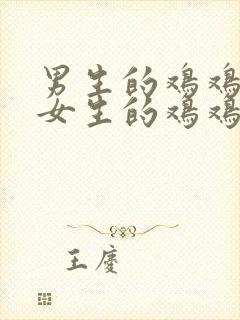 男生的鸡鸡
女生的鸡鸡
王庆